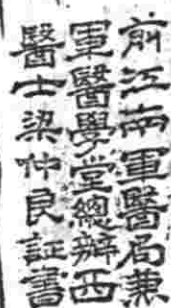 前江南軍醫局兼
軍醫學堂總辦西
醫士梁仲良証書